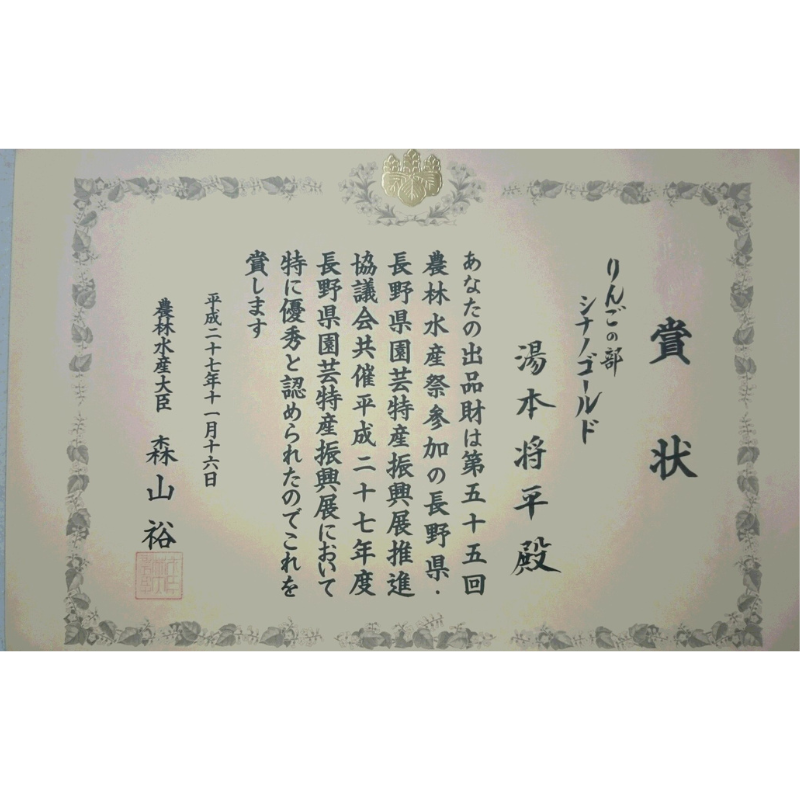 賞状
りんごの部
シナノゴールド
湯本将平殿
あなたの出品財は第五十五回
農林水産祭参加の長野県・
長野県園芸特産振興展推進
協議会共催平成二十七年度
長野県園芸特産振興展において
特に優秀と認められたのでこれを
賞します
平成二十七年十一月十六日
農林水産大臣 森山裕